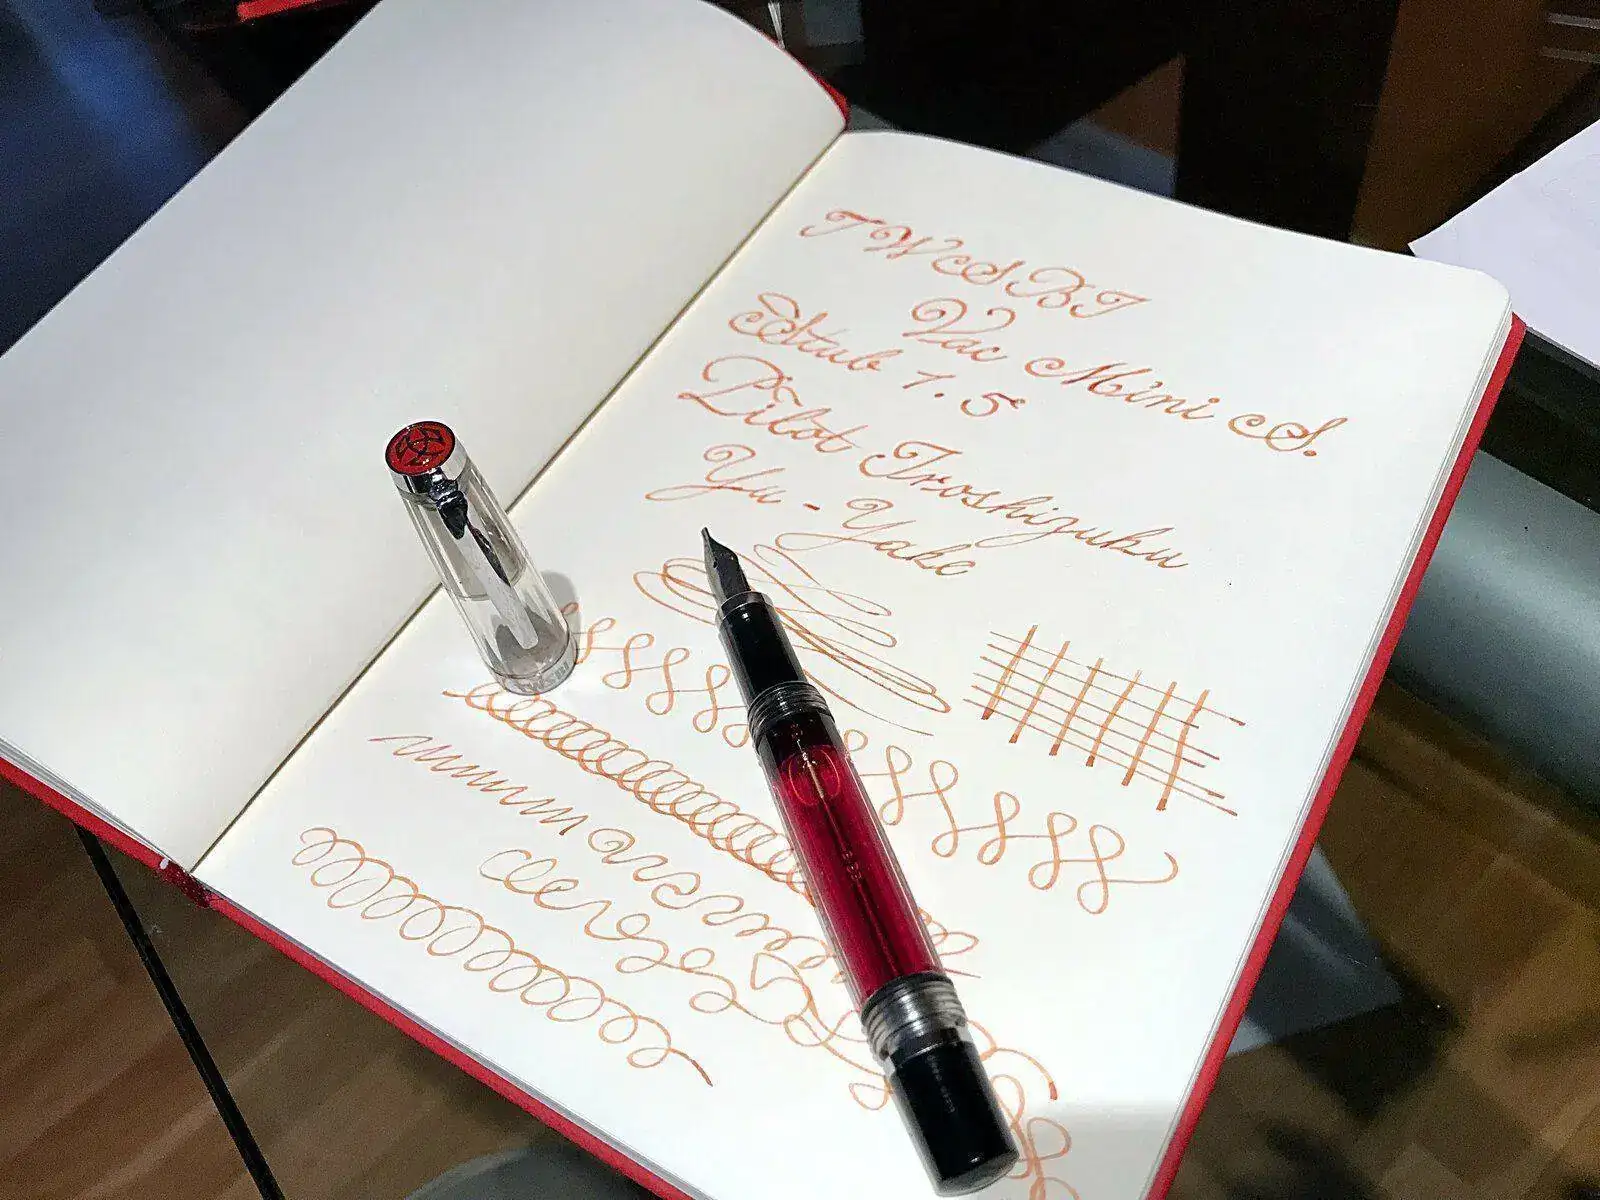 TWSBI
Vac Mini S.
Stub 1.5
Pilot Iroshizuku
Yu-Yake